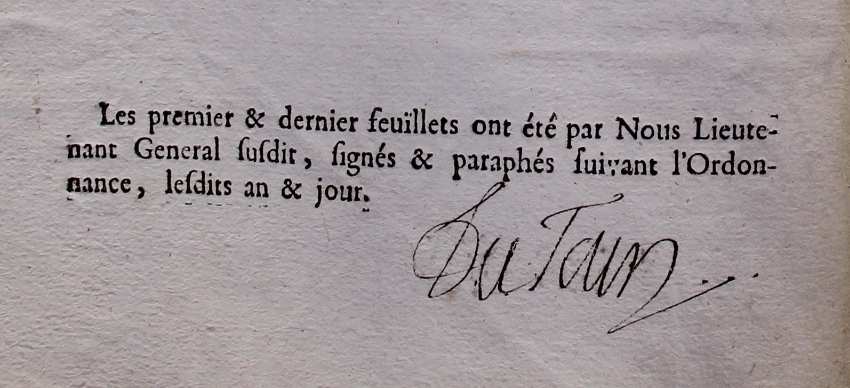 Les premier & dernier feuïllets ont été par Nous Lieute-
nant General ſuſdit, ſignés & paraphés ſuivant l'Ordon-
nance, leſdits an & jour.